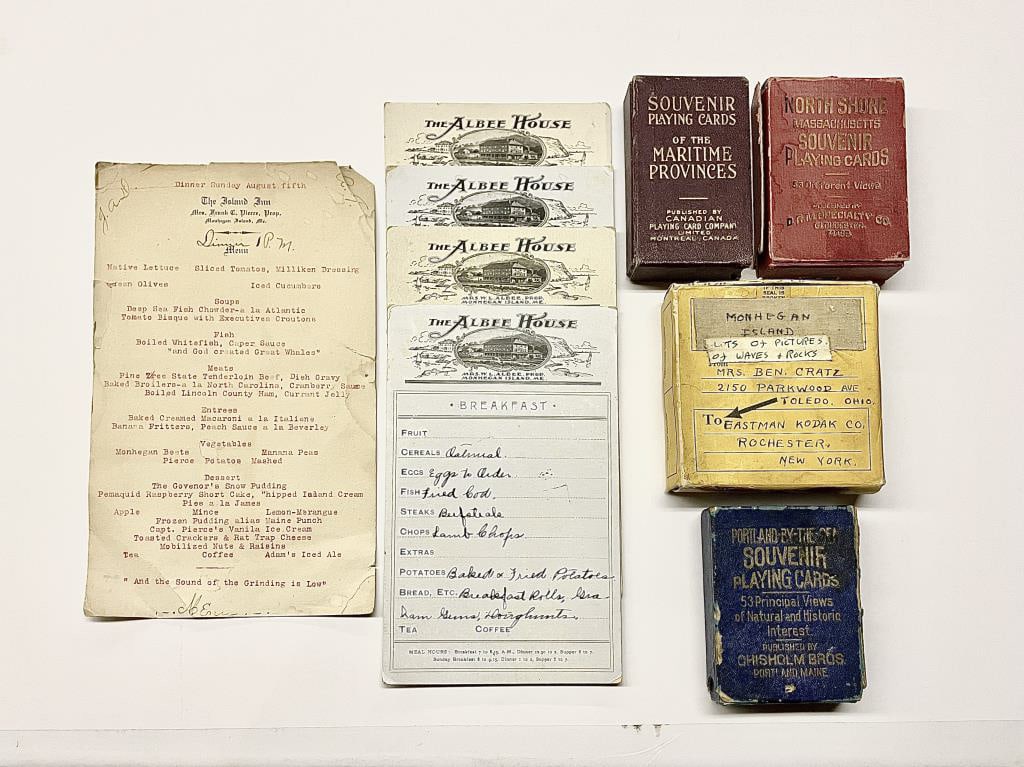 Dinner Sunday August fifth
The Island Inn
Mrs. Frank C. Pierce, Prop.
Monhegan Island, Me.
Dinner 1 P.M.
Menu
Native Lettuce Sliced Tomatos, Milliken Dressing
Green Olives Iced Cucumbers
Soups
Deep Sea Fish Chowder-a la Atlantic
Tomato Bisque with Executives Croutons
Fish
Boiled Whitefish, Caper Sauce
"and God created Great Whales"
Meats
Pine Tree State Tenderloin Beef, Dish Gravy
Baked Broilers-a la North Carolina, Cranberry Sauce
Boiled Lincoln County Ham, Currant Jelly
Entrees
Baked Creamed Macaroni a la Italiane
Banana Fritters, Peach Sauce a la Beverley
Vegetables
Monhegan Beets Manana Peas
Pierce Potatos Mashed
Dessert
The Govenor's Snow Pudding
Pemaquid Raspberry Short Cake, "hipped Island Cream
Pies a la James
Apple Mince Lemon-Merangue
Frozen Pudding alias Maine Punch
Capt. Pierce's Vanila Ice Cream
Toasted Crackers & Rat Trap Cheese
Mobilized Nuts & Raisins
Tea Coffee Adam's Iced Ale
"And the Sound of the Grinding is Low"
THE ALBEE HOUSE
THE ALBEE HOUSE
THE ALBEE HOUSE
MRS. W. L. ALBEE, PROP.
MONHEGAN ISLAND, ME.
THE ALBEE HOUSE
MRS. W. L. ALBEE, PROP.
MONHEGAN ISLAND, ME.
· BREAKFAST ·
FRUIT
CEREALS Oatmeal.
EGGS Eggs to Order
FISH Fried Cod.
STEAKS Beefsteak
CHOPS Lamb Chops.
EXTRAS
POTATOES Baked & Fried Potatoes
BREAD, ETC. Breakfast Rolls, Gra
ham Gems, Doughnuts.
TEA COFFEE
MEAL HOURS: Breakfast 7 to 8.45 A.M., Dinner 12.30 to 2, Supper 6 to 7.
Sunday Breakfast 8 to 9.15, Dinner 1 to 2, Supper 6 to 7.
SOUVENIR
PLAYING CARDS
OF THE
MARITIME
PROVINCES
PUBLISHED BY
CANADIAN
PLAYING CARD COMPANY
LIMITED
MONTREAL, CANADA
NORTH SHORE
MASSACHUSETTS
SOUVENIR
PLAYING CARDS
53 Different Views
PUBLISHED BY
SPECIALTY CO.
GLOUCESTER
MASS.
IF THIS
SEAL IS
MONHEGAN
ISLAND
LOTS OF PICTURES.
OF WAVES & ROCKS
From
MRS. BEN. CRATZ
2150 PARKWOOD AVE
TOLEDO, OHIO.
To EASTMAN KODAK CO.
ROCHESTER,
NEW YORK.
PORTLAND-BY-THE-SEA
SOUVENIR
PLAYING CARDS
53 Principal Views
of Natural and Historic
Interest.
PUBLISHED BY
CHISHOLM BROS.
PORTLAND, MAINE.